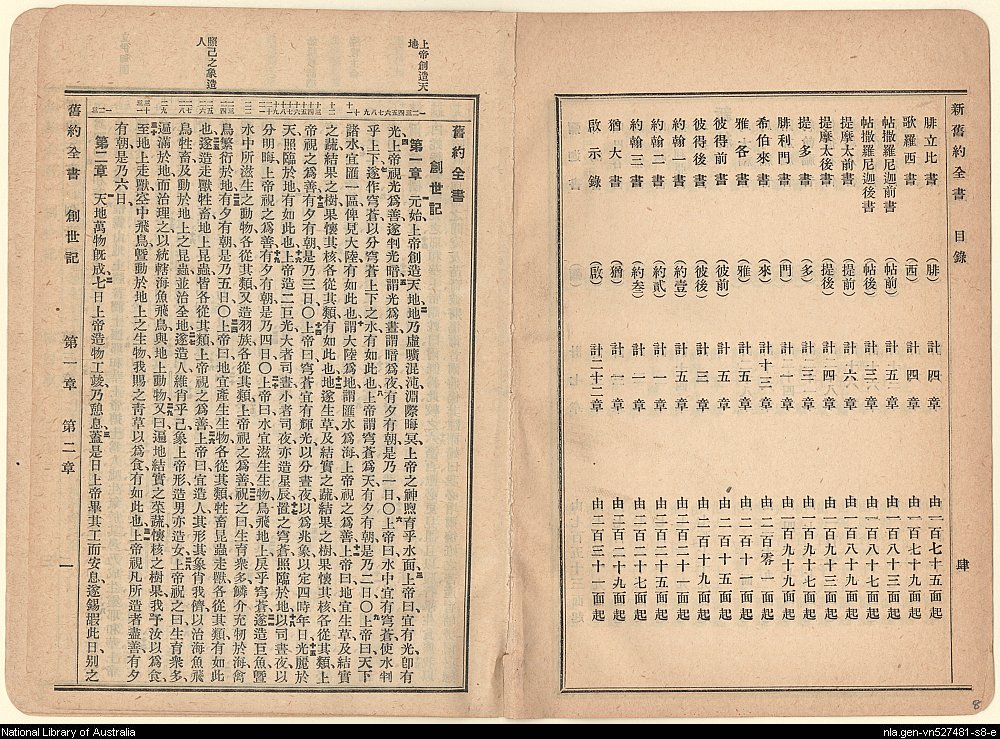 新舊約全書 目錄 肆
腓立比書 (腓) 計四章 由一百七十五面起
歌羅西書 (西) 計四章 由一百七十九面起
帖撒羅尼迦前書 (帖前) 計五章 由一百八十三面起
帖撒羅尼迦後書 (帖後) 計三章 由一百八十七面起
提摩太前書 (提前) 計六章 由一百八十九面起
提摩太後書 (提後) 計四章 由一百九十三面起
提多書 (多) 計三章 由一百九十七面起
腓利門書 (門) 計一章 由一百九十九面起
希伯來書 (來) 計十三章 由二百零一面起
雅各書 (雅) 計五章 由二百十一面起
彼得前書 (彼前) 計五章 由二百十五面起
彼得後書 (彼後) 計三章 由二百十九面起
約翰一書 (約壹) 計五章 由二百二十一面起
約翰二書 (約貳) 計一章 由二百二十五面起
約翰三書 (約叁) 計一章 由二百二十七面起
猶大書 (猶) 計一章 由二百二十九面起
啟示錄 (啟) 計二十二章 由二百三十一面起
8
上帝創造天
地
照己之象造
人
舊約全書
創世記
第一章 元始、上帝創造天地、地乃虛曠混沌、淵際晦冥、上帝之神煦育乎水面、上帝曰、宜有光、卽有
光、上帝視光為善、遂判光暗、謂光為晝、謂暗為夜、有夕有朝、是乃一日、〇上帝曰、水中宜有穹蒼、使水判
乎上下、遂作穹蒼、以分穹蒼上下之水、有如此也、上帝謂穹蒼為天、有夕有朝、是乃二日、〇上帝曰、天下
諸水宜匯一區、俾見大陸、有如此也、謂大陸為地、謂匯水為海、上帝視之為善、上帝曰、地宜生草及結實
之蔬、結果之樹、果懷其核、各從其類、有如此也、地遂生草、及結實之蔬、結果之樹、果懷其核、各從其類、上
帝視之為善、有夕有朝、是乃三日、〇上帝曰、穹蒼宜有輝光、以分晝夜、以為兆象、以定四時年日、光麗於
天、照臨於地、有如此也、上帝造二巨光、大者司晝、小者司夜、亦造星辰、置之穹蒼、照臨於地、以司晝夜、以
分明晦、上帝視之為善、有夕有朝、是乃四日、〇上帝曰、水宜滋生生物、鳥飛地上、戾乎穹蒼、遂造巨魚、曁
水中所滋生之動物、各從其類、又造羽族、各從其類、上帝視之為善、祝之曰、生育衆多、鱗介充牣於海、禽
鳥繁衍於地、有夕有朝、是乃五日、〇上帝曰、地宜產生生物、各從其類、牲畜昆蟲走獸、各從其類、有如此
也、遂造走獸牲畜、地上昆蟲、皆各從其類、上帝視之為善、上帝曰、宜造人、其形其象肖我儕、以治海魚飛
鳥牲畜、及動於地上之昆蟲、並治全地、遂造人、維肖乎己、象上帝形、造男亦造女、上帝祝之曰、生育衆多、
遍滿於地而治理之、以統轄海魚飛鳥、與地上動物、又曰、遍地結實之菜蔬、懷核之樹果、我予汝以為食、
至地上走獸、空中飛鳥、曁動於地上之生物、我賜之青草以為食、有如此也、上帝視凡所造者盡善、有夕
有朝、是乃六日、
第二章 天地萬物旣成、七日上帝造物工竣、乃憩息、蓋是日上帝畢其工而安息、遂錫嘏此日、別之
舊約全書 創世記 第一章 第二章 一
National Library of Australia
nla.gen-vn527481-s8-e